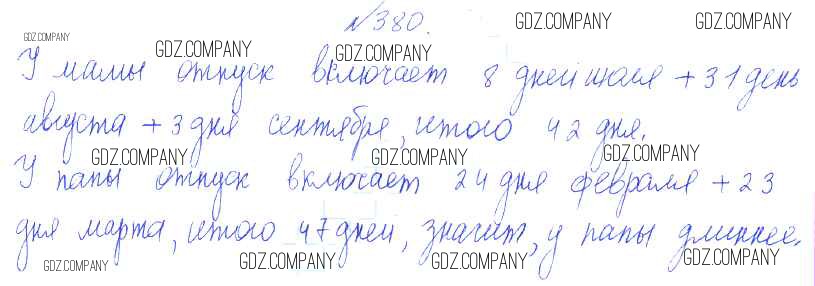 №380.
GDZ.COMPANY GDZ.COMPANY
GDZ.COMPANY GDZ.COMPANY GDZ.COMPANY
У мамы отпуск включает 8 дней июля + 31 день
августа + 3 дня сентября, итого 42 дня.
GDZ.COMPANY GDZ.COMPANY GDZ.COMPANY
У папы отпуск включает 24 дня февраля + 23
дня марта, итого 47 дней, значит, у папы длиннее.
GDZ.COMPANY GDZ.COMPANY GDZ.COMPANY GDZ.COMPANY